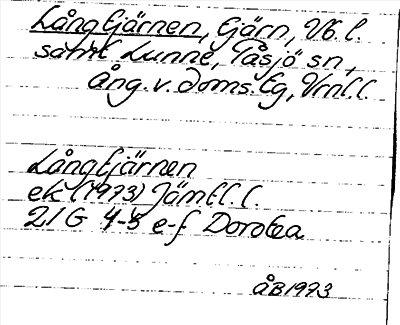 Långtjärnen, tjärn, Vb. l.
samt Lunne, Tåsjö sn,
Ång. v. doms. tg, Vrnl. l.
Långtjärnen
ek (1973) Jämtl. l.
21G 4-5 e-f Dorotea
ÅB1973